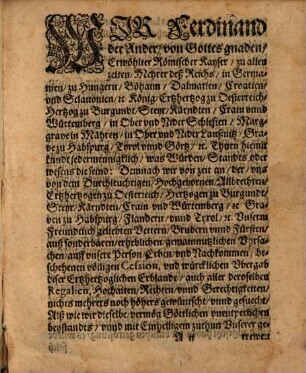 WIR Ferdinand
der Ander/ von Gottes gnaden/
Erwöhlter Römischer Kayser/ zu allen
zeiten Mehrer deß Reichs/ in Germa-
nien/ zu Hungern/ Böhaim/ Dalmatien/ Croatien/
vnd Sclauonien/ ꝛc. König/ Ertzhertzog zu Oesterreich/
Hertzog zu Burgundt/ Steyr/ Kärndten/ Crain vnnd
Würtenberg/ in Ober vnd Nider Schlesien/ Marg-
graue in Mähren/ in Ober vnd Nider Laußnitz/ Gra-
ue zu Habspurg/ Tyrol vnnd Görtz/ ꝛc. Thuen hiemit
kundt jedermenniglich/ was Würden/ Standts oder
wesens die seind: Demnach wir von zeit an/ der/ vns
von dem Durchleuchtigen/ Hochgebornen Allbrechten/
Ertzhertzogen zu Oesterreich/ Hertzogen zu Burgundt/
Steyr/ Kärndten/ Crain vnd Würtemberg/ ꝛc. Grauen
zu Habspurg/ Flandern/ vnnd Tyrol/ ꝛc. Vnserm
Freundtlich geliebten Vettern/ Brudern vnnd Fürsten/
auß sonderbaren/ erheblichen/ gemainnutzlichen Vrsa-
chen/ auff vnsere Person/ Erben vnd Nachkommen/ be-
schehenen völligen Cession, vnd würcklichen Vbergab
diser Ertzhertzoglichen Erblande/ auch aller deroselben
Regalien, Hochaiten/ Rechten/ vnnd Gerechtigkeiten/
nichts mehrers noch höhers gewünscht/ vnnd gesucht/
Alß wie wir dieselbe/ vermög Göttlichen vnentperlichen
beystandts/ vnnd mit Einhelligem zuthun Vnserer ge-
A ij trewen